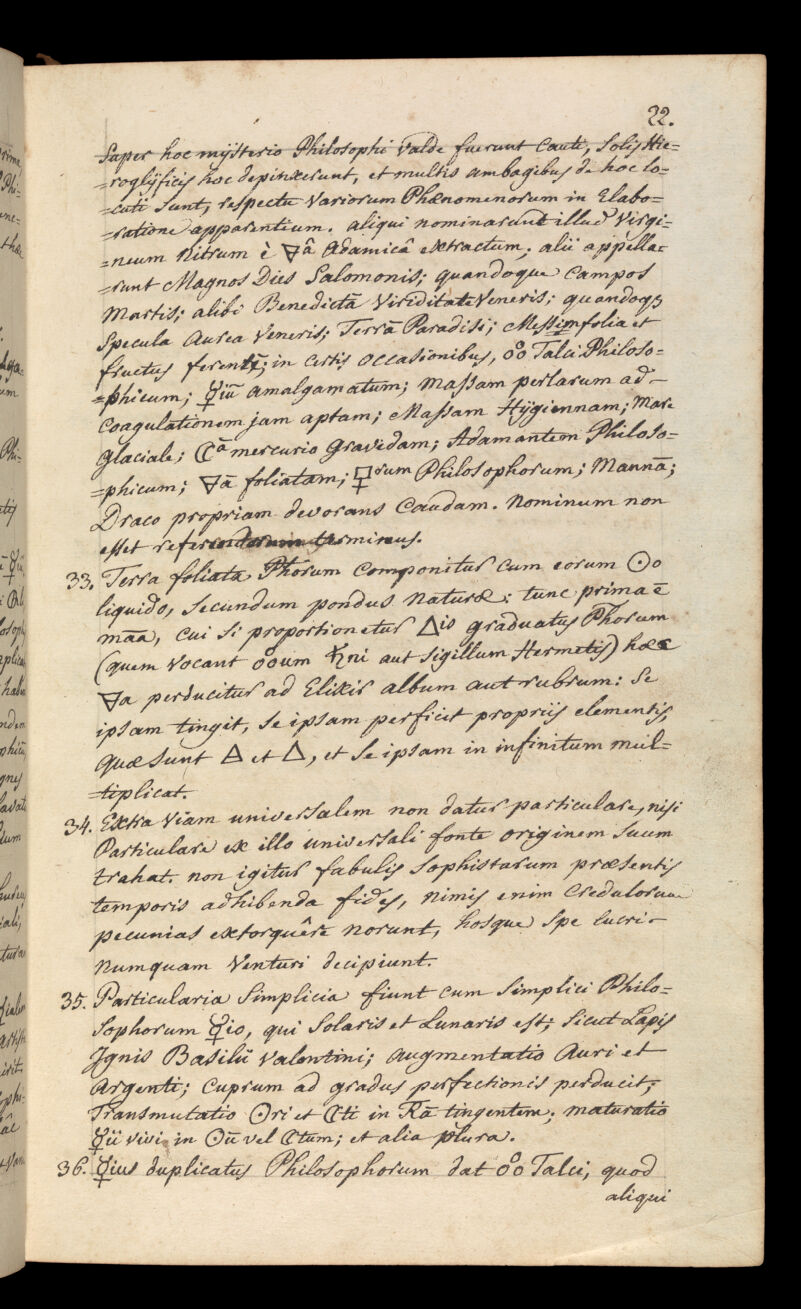 22.
Super hoc mÿsterio Philosophi valde fuerunt cauti, Solis Hie=
=roglÿficis hoc depinxerunt, et multis ambagibus de hoc lo=
=cuti sunt, respectu variorum Phænomenorum in Elabo=
=ratione apparentium. aliqui nominarunt illud Virgi=
=neum Nitrum è 🜃â Adamicâ extractum; alii appella=
=runt Magnos Dies Salomonis; quandoque Campos
Martis; alibi Benedictā Viriditatē Veneris; quandoqȝ
Specula Aurea Veneris; Terrā Paradisi; Messim folia et
fructus ferentē; in certis occasionibus, o°o Talci Philoso=
=phicum; ☿iū amalgamatum; Massam perlarum ad
Coagulationem jam aptam; Massam Hÿgiennam; Mare
Glaciale; ☾ā mercurio Gravidam; Adamantem Philoso=
=phicum; 🜃ā foliatam; 🜿orum Philosophorum; Mannā;
Draco propriam devorans Caudam. Nominum non
esset referendorum terminus.
33. Terra foliata Phorum componitur cum eorum ☉o
liquido, secundum pondus naturæ; tunc prima ē
māa, cui si proportionetur △is graduatus Phorum
(quem vocant o°oum ♄ni aut Sigillum Hermetis) hæc
🜃a perducitur ad Elixir album aut rubrum: Se
ipsam tingit, se ipsam perficit propriis elementis,
quæ sunt △ et △, et se ipsam in infinitum mul=
=tiplicat.
34. Extra viam universalem non datur particulare, nisi
Particulare ex illo universali fonte originem suum
trahat. non igitur fabulis Sophistarum præsentis
temporis adhibenda fides, nimis enim Credulorum
pecunias extorquêre norunt, hosque spe lucri
numquam venturi decipiunt.
35. Particularia Simplicia fiunt cum simplici Philo=
Sophorum ☿io, qui Solaris et Lunaris est; sicut Lapis
Ignis Basilii Valentini; augmentatio Auri et
Argenti; Cuprum ad gradus perfectionis perducit;
Transmutatio ☉ri et ☾ti in Rā tingentem; maturatio
☿ii vivi in ☉ū vel ☾tum; et alia plura.
36. ☿ius duplicatus Philosophorum dat o°o Talci, quod
aliqui